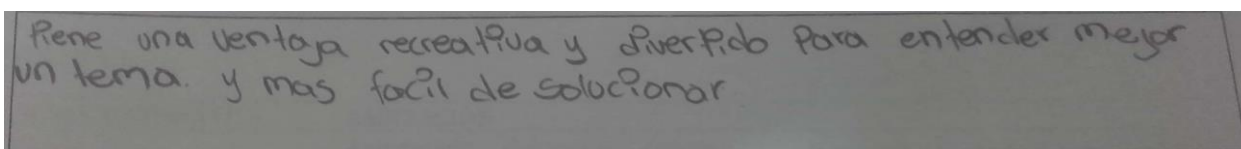 tiene una ventaja recreativa y divertido para entender mejor
un tema. y mas facil de solucionar